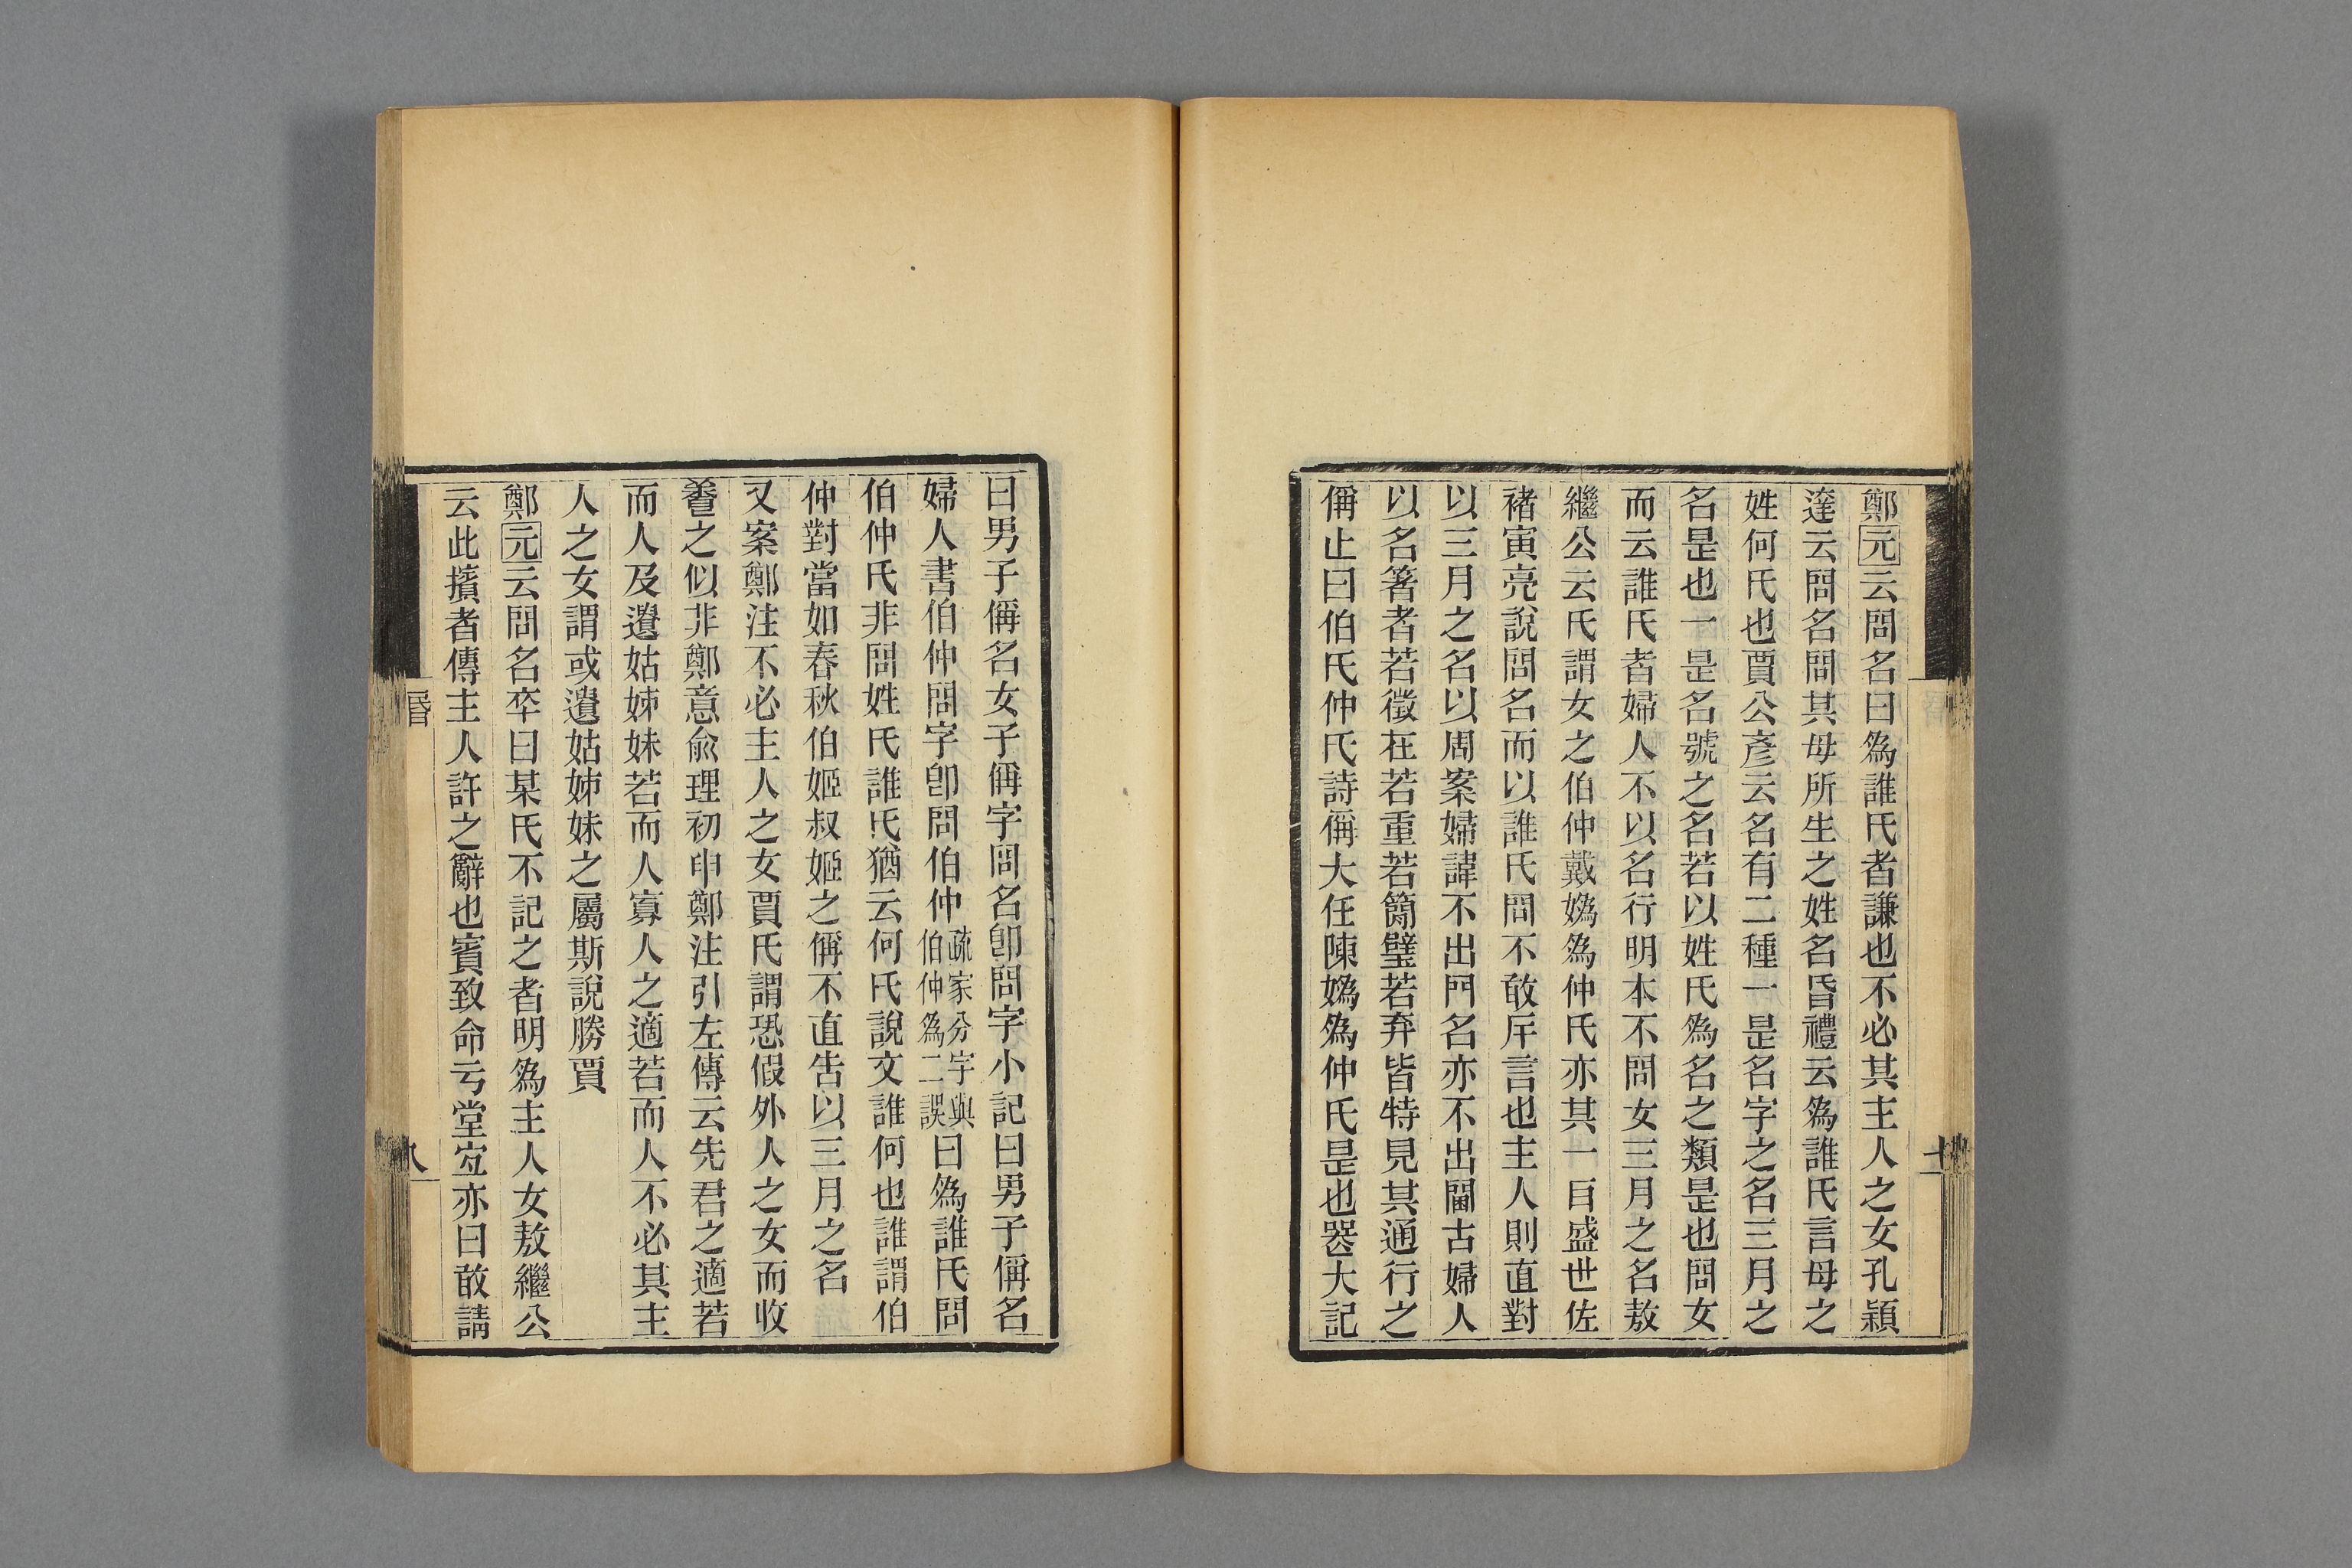 鄭元云問名曰為誰氏者謙也不必其主人之女孔穎
達云問名問其母所生之姓名昏禮云為誰氏言母之
姓何氏也賈公彥云名有二種一是名字之名三月之
名是也一是名號之名若以姓氏為名之類是也問女
而云誰氏者婦人不以名行明本不問女三月之名敖
繼公云氏謂女之伯仲戴媯為仲氏亦其一㠯盛世佐
褚寅亮說問名而以誰氏問不敢斥言也主人則直對
以三月之名以周案婦諱不出門名亦不出閫古婦人
以名箸者若徵在若重若簡璧若弃皆特見其通行之
偁止曰伯氏仲氏詩偁大任陳媯為仲氏是也喪大記
曰男子偁名女子偁字問名卽問字小記曰男子偁名
婦人書伯仲問字卽問伯仲疏家分字與伯仲為二誤曰為誰氏問
伯仲氏非問姓氏誰氏猶云何氏說文誰何也誰謂伯
仲對當如春秋伯姬叔姬之偁不直告以三月之名
又案鄭注不必主人之女賈氏謂恐假外人之女而收
養之似非鄭意兪理初申鄭注引左傳云先君之適若
而人及遺姑姊妹若而人寡人之適若而人不必其主
人之女謂或遺姑姊妹之屬斯說勝賈
鄭元云問名卒曰某氏不記之者明為主人女敖繼公
云此擯者傳主人許之辭也賓致命亏堂宐亦曰敢請
昬
九